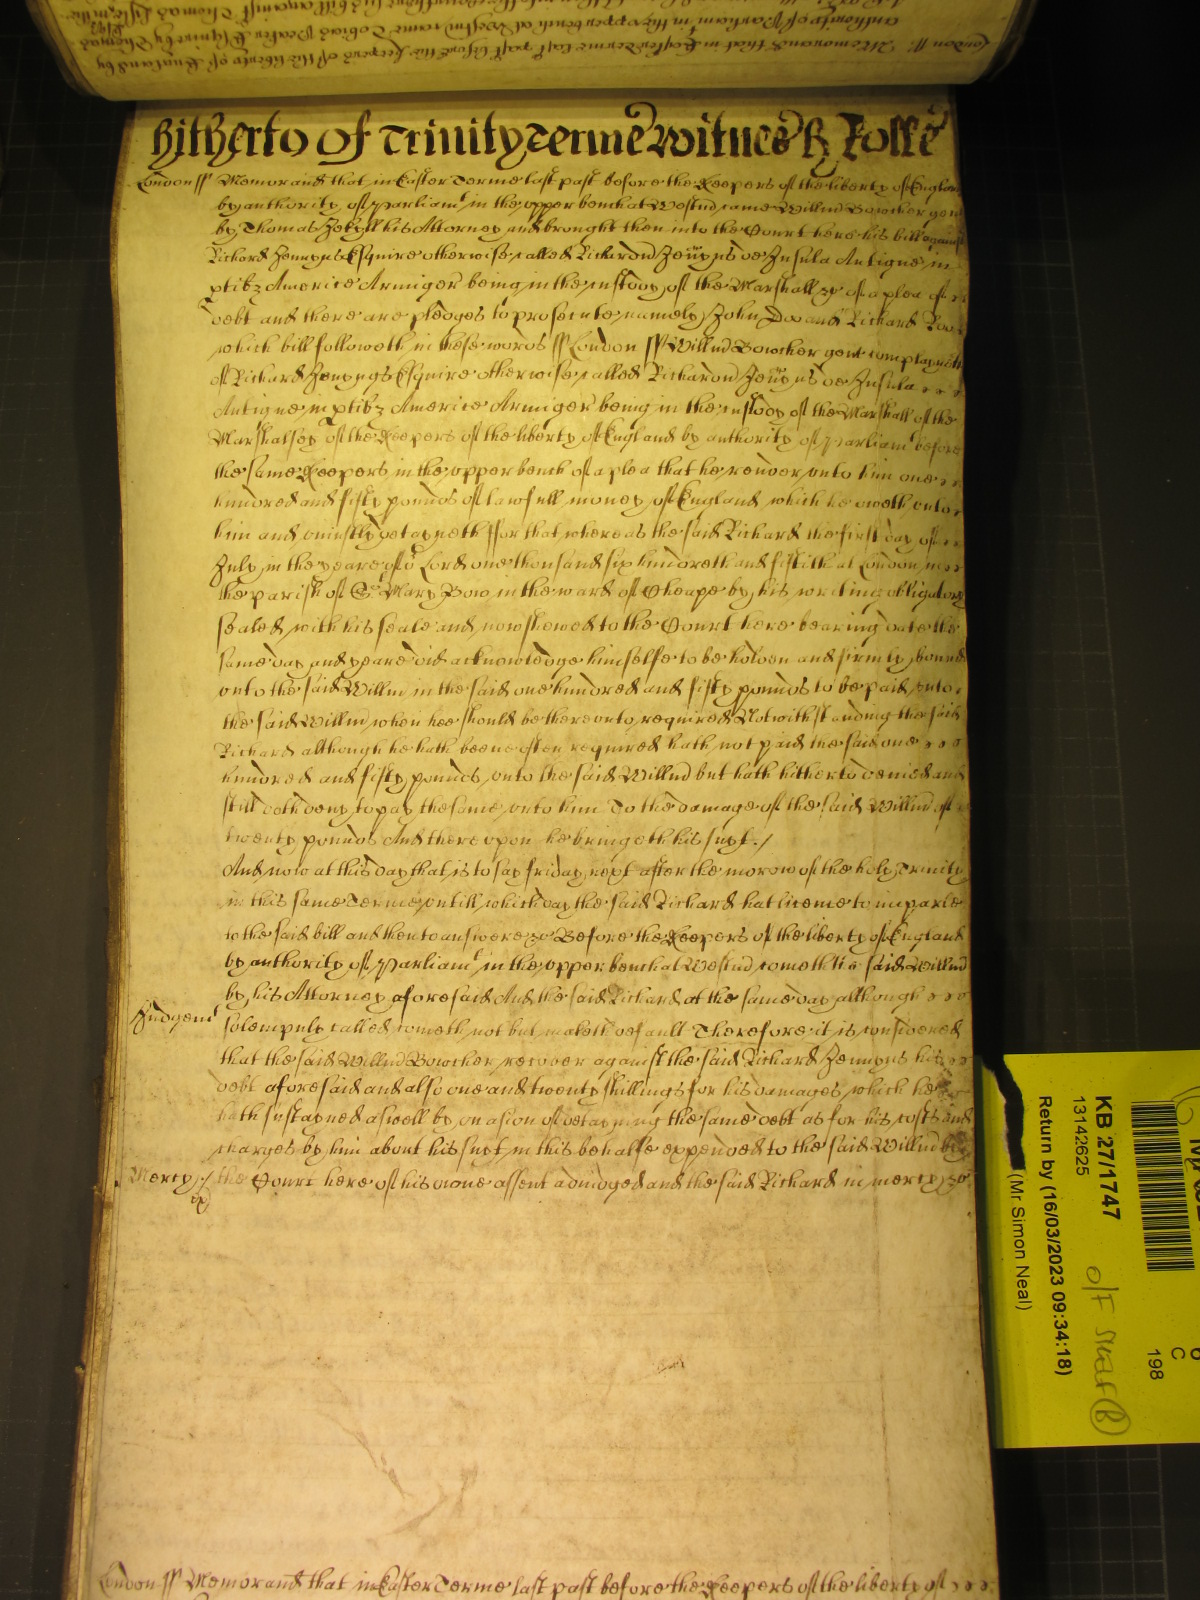 Hitherto of Trinity Terme Witnes H Rolle
London ss Memorand that in Easter Terme last past before the Keepers of the liberty of England
by authority of Parliamt in the upper bench at Westmr came Willm Bowcher gent
by Thomas Jekyll his Attorney and brought then into the Court here his bill against
Richard Jennyns Esquire otherwise called Richardu Jenyns de Insula Antigue in
ptibz Americe Armiger being in the custody of the Marshall &c of a plea of
debt and there are pledges to prosecute namely John Doo and Richard Roo
which bill followeth in these words ss London ss Willm Bowcher gent complayneth
of Richard Jenyngs Esquire otherwise called Richardu Jenyns de Insula
Antigue in ptibz Americe Armiger being in the custody of the Marshall of the
Marshalsey of the Keepers of the liberty of England by authority of Parliamt before
the same Keepers in the upper bench of a plea that he render unto him one
hundred and fifty pounds of lawfull money of England which he oweth unto
him and uniustly detayneth ffor that whereas the said Richard the first day of
July in the yeare of or Lord one thousand six hundreth and fiftith at London in
the parish of St Mary Bow in the ward of Cheape by his writing obligatory
sealed with his seale and now shewed to the Court here bearing date the
same day and yeare did acknowledge himselfe to be holden and firmly bound
unto the said Willm in the said one hundred and fifty pounds to be paid unto
the said Willm when hee should be thereunto required Notwithstanding the said
Richard although he hath beene often required hath not paid the said one
hundred and fifty pounds unto the said Willm but hath hitherto denied and
still doth deny to pay the same unto him To the damage of the said Willm of
twenty pounds And thereupon he bringeth his suyt ./
And now at this day that is to say friday next after the morow of the holy Trinity
in this same Terme untill which day the said Richard hat licence to imparle
to the said bill and then to answere &c Before the Keepers of the liberty of England
by authority of Parliamt in the upper bench at Westmr cometh the said Willm
by his Attorney aforesaid And the said Richard at the same day allthough
Judgemt
solempnly called cometh not but maketh default Therefore it is considered
that the said Willm Bowcher recover against the said Richard Jennyns his
debt aforesaid and also one and twenty shillings for his damages which he
hath sustayned aswell by occasion of detayning the same debt as for his costs and
charges by him about his suyt in this behalfe expended to the said Willm by
Mercy ./ the Court here of his owne assent adiudged and the said Richard in mercy &c
London ss Memorand that in Easter Terme last past before the Keepers of the liberty of
KB 27/1747
13142625
Return by (16/03/2023 09:34:18)
(Mr Simon Neal)
C
198